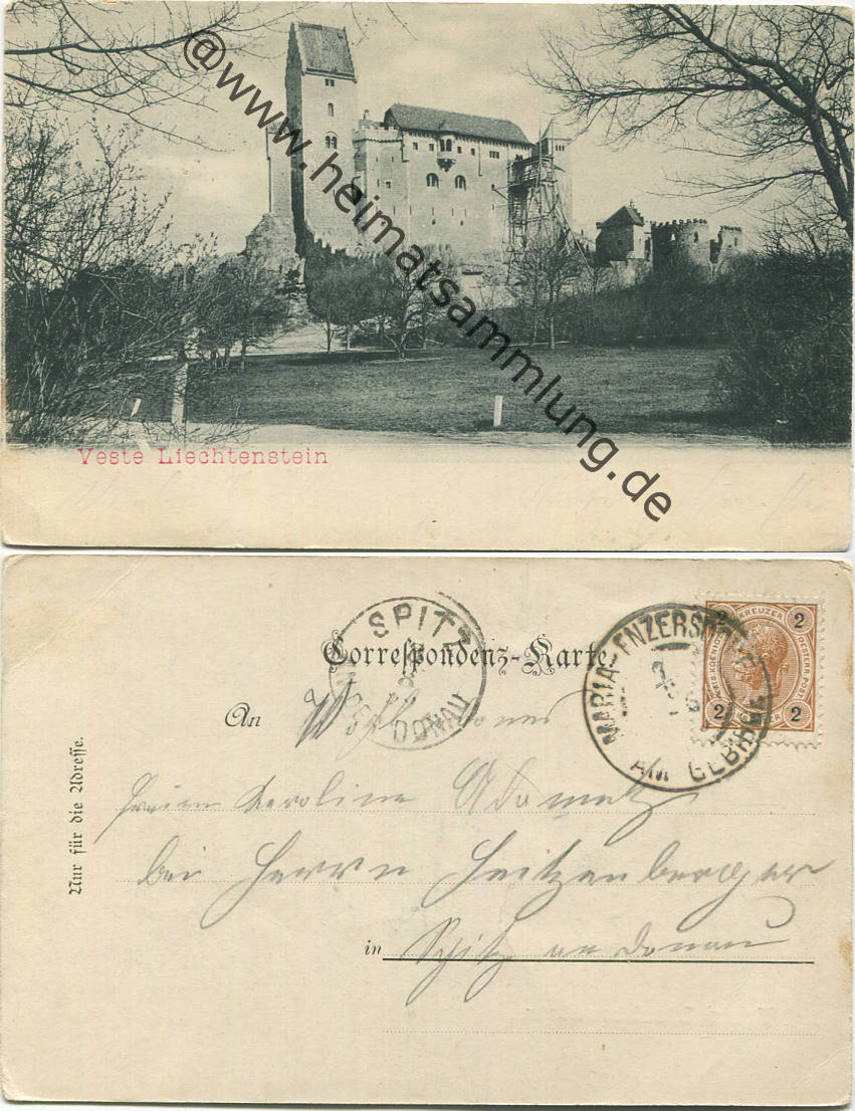 @www.heimatsammlung.de
Veste Liechtenstein
SPITZ
DONAU
Correspondenz-Karte
MARIA-ENZERSDORF
AM GEBIRGE
2 KREUZER 2
OESTERR. POST
2 2
An Wohl
Nur für die Adresse.
Karoline Adametz
bei Herrn Heitzenberger
in Spitz an Donau